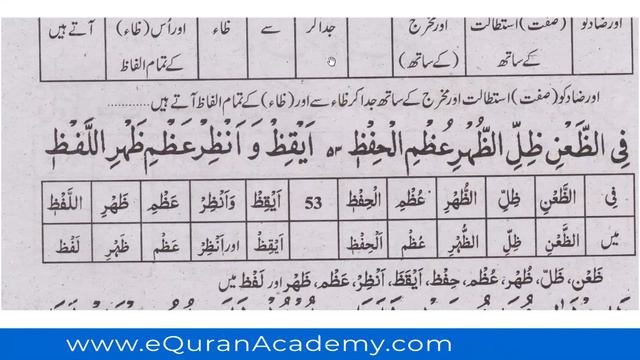 اور ضاد کو (صفت) استطالت اور مخرج جدا کر سے ظاء اور اُس (ظاء) آتے ہیں
کے ساتھ (کے ساتھ) کے تمام الفاظ
اور ضاد کو (صفت) استطالت اور مخرج کے ساتھ جدا کر ظاء سے اور (ظاء) کے تمام الفاظ آتے ہیں............
فِى الظَّعْنِ ظِلِّ الظُّهْرِ عُظْمِ الْحِفْظِ ۵۳ اَيْقِظْ وَ اَنْظِرْ عَظْمِ ظَهْرِ اللَّفْظِ
فِى الظَّعْنِ ظِلِّ الظُّهْرِ عُظْمِ الْحِفْظِ 53 اَيْقِظْ وَاَنْظِرْ عَظْمِ ظَهْرِ اللَّفْظِ
میں الظَّعْنِ ظِلِّ الظُّهْرِ عُظْمِ الْحِفْظِ اَيْقِظْ اور اَنْظِرْ عَظْمِ ظَهْرِ لَفْظِ
ظَعْن، ظَلّ، ظُهْر، عُظْم، حِفْظ، اَيْقَظَ، اَنْظِرْ، عَظْم، ظَهْر اور لَفْظ میں
www.eQuranAcademy.com